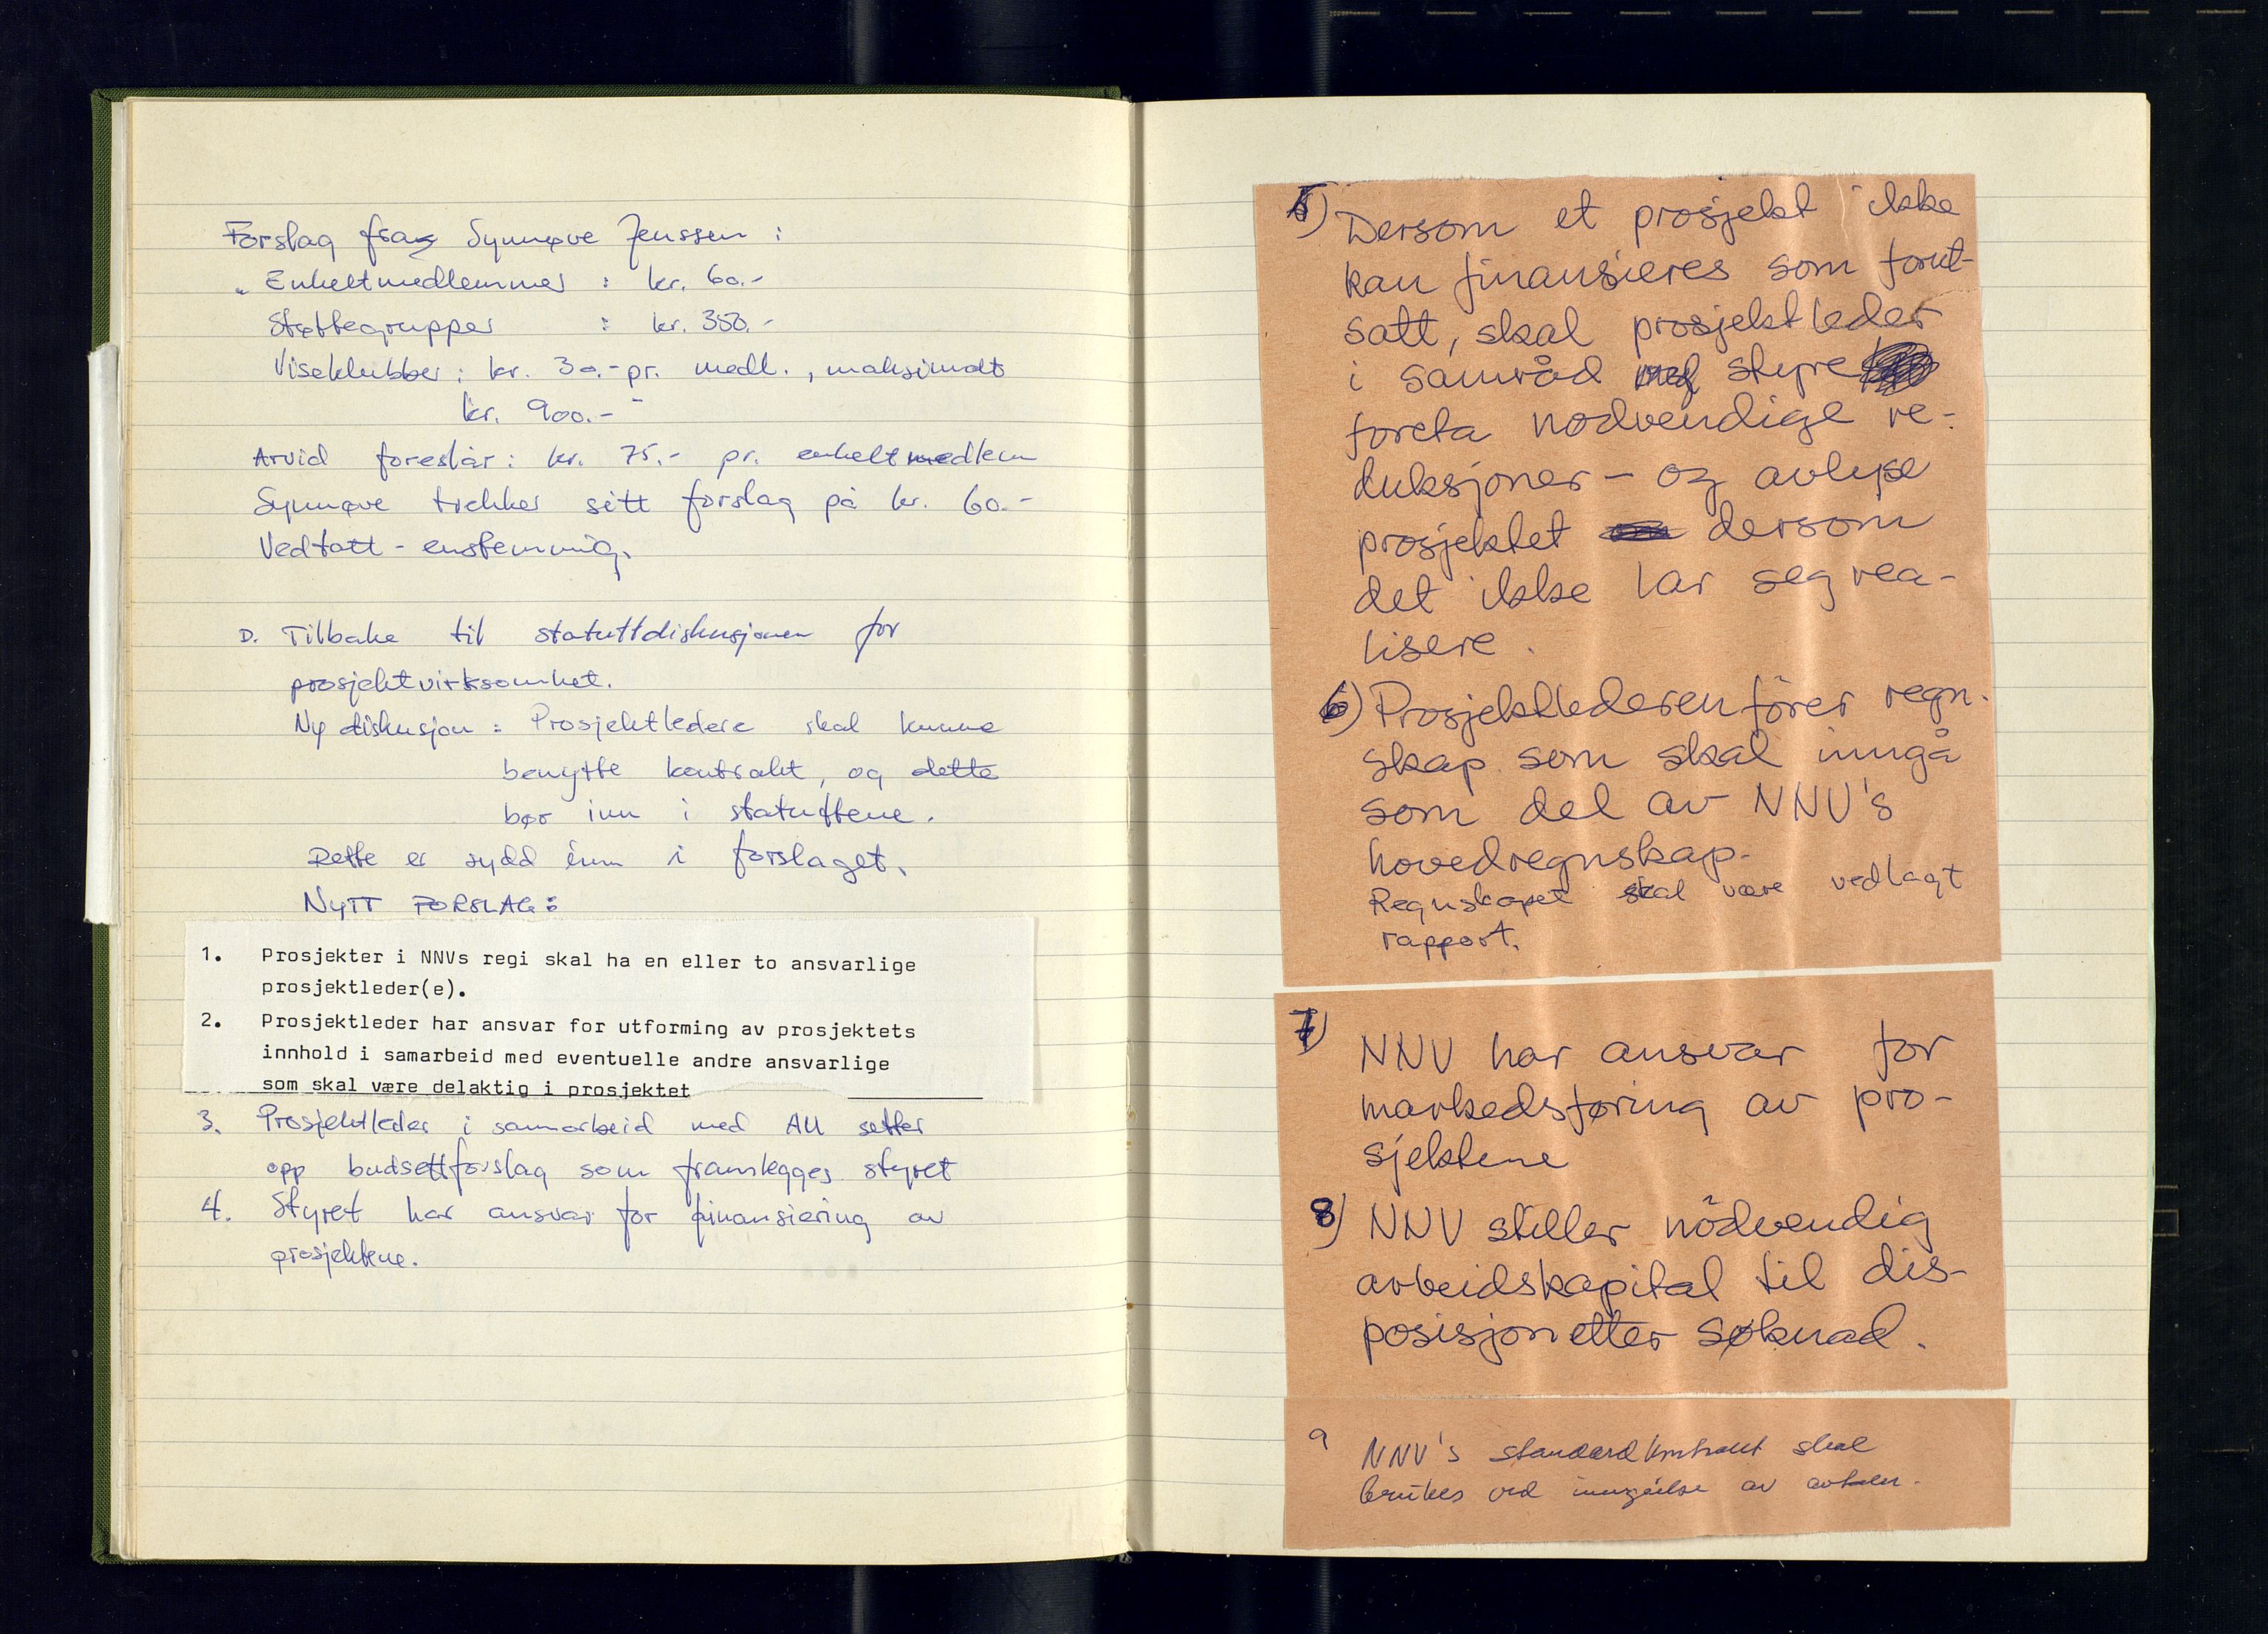 Forslag fra Synnøve Jenssen :
" Enkeltmedlemmer : kr. 60.-
Støttegrupper : kr. 350.-
Viseklubber : kr. 30.- pr. medl. , maksimalt
kr. 900.- "
Arvid foreslår : kr. 75.- pr. enkeltmedlem
Synnøve trekker sitt forslag på kr. 60.-
Vedtatt - enstemmig.
D. Tilbake til statuttdiskusjonen for
prosjektvirksomhet.
Ny diskusjon : Prosjektledere skal kunne
benytte kontrakt, og dette
bør inn i statuttene.
Dette er sydd inn i forslaget.
NYTT FORSLAG :
1. Prosjekter i NNVs regi skal ha en eller to ansvarlige
prosjektleder(e).
2. Prosjektleder har ansvar for utforming av prosjektets
innhold i samarbeid med eventuelle andre ansvarlige
som skal være delaktig i prosjektet
3. Prosjektleder i samarbeid med AU setter
opp budsettforslag som framlegges styret
4. Styret har ansvar for finansiering av
prosjektene.
5) Dersom et prosjekt ikke
kan finansieres som forut-
satt, skal prosjektleder
i samråd med styre
foreta nødvendige re-
duksjoner - og avlyse
prosjektet dersom
det ikke lar seg rea-
lisere.
6) Prosjektlederen fører regn-
skap som skal inngå
som del av NNV's
hovedregnskap.
Regnskapet skal være vedlagt
rapport.
7) NNV har ansvar for
markedsføring av pro-
sjektene
8) NNV stiller nödvendig
arbeidskapital til dis-
posisjon etter søknad.
9 NNV's standardkontrakt skal
brukes ved inngåelse av avtaler.